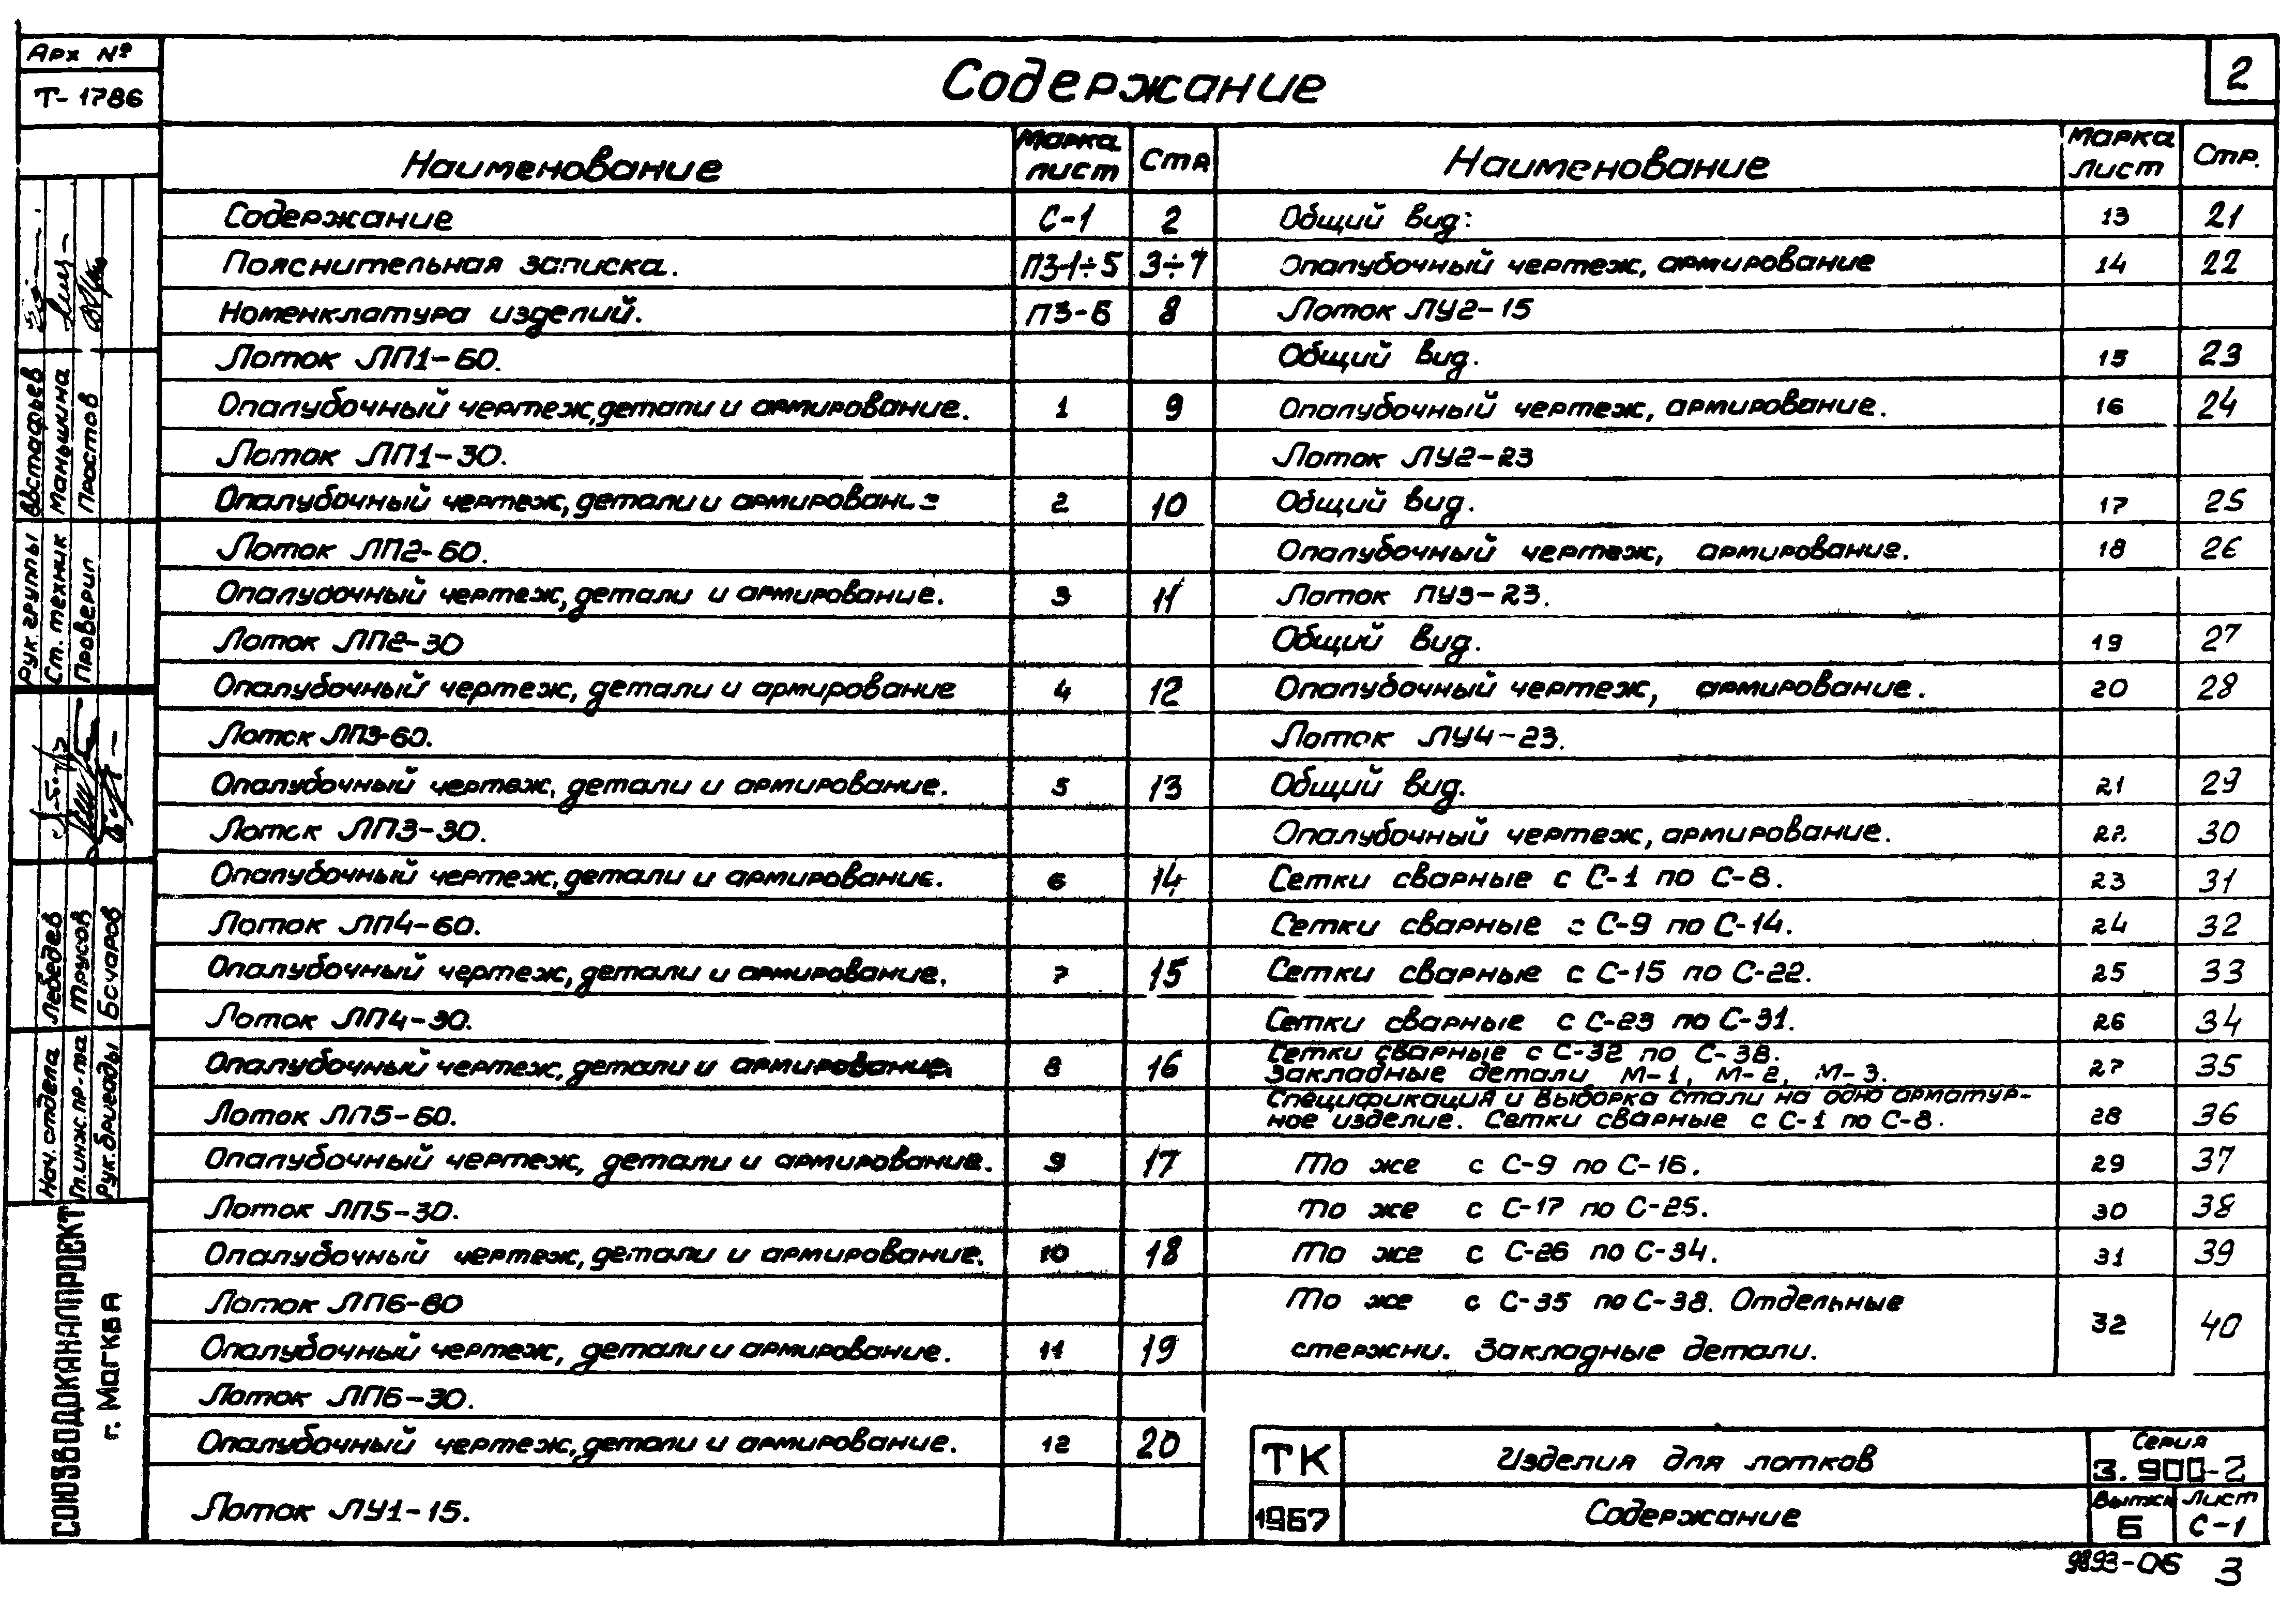 Арх №
Т-1786
Содержание
2
Наименование Марка лист Стр
Содержание С-1 2
Пояснительная записка. ПЗ-1÷5 3÷7
Номенклатура изделий. ПЗ-6 8
Лоток ЛП1-60.
Опалубочный чертеж, детали и армирование. 1 9
Лоток ЛП1-30.
Опалубочный чертеж, детали и армирование 2 10
Лоток ЛП2-60.
Опалубочный чертеж, детали и армирование. 3 11
Лоток ЛП2-30
Опалубочный чертеж, детали и армирование 4 12
Лоток ЛП3-60.
Опалубочный чертеж, детали и армирование. 5 13
Лоток ЛП3-30.
Опалубочный чертеж, детали и армирование. 6 14
Лоток ЛП4-60.
Опалубочный чертеж, детали и армирование. 7 15
Лоток ЛП4-30.
Опалубочный чертеж, детали и армирование. 8 16
Лоток ЛП5-60.
Опалубочный чертеж, детали и армирование. 9 17
Лоток ЛП5-30.
Опалубочный чертеж, детали и армирование. 10 18
Лоток ЛП6-60
Опалубочный чертеж, детали и армирование. 11 19
Лоток ЛП6-30.
Опалубочный чертеж, детали и армирование. 12 20
Лоток ЛУ1-15.
Наименование Марка лист Стр.
Общий вид: 13 21
Опалубочный чертеж, армирование 14 22
Лоток ЛУ2-15
Общий вид. 15 23
Опалубочный чертеж, армирование. 16 24
Лоток ЛУ2-23
Общий вид. 17 25
Опалубочный чертеж, армирование. 18 26
Лоток ЛУ3-23.
Общий вид. 19 27
Опалубочный чертеж, армирование. 20 28
Лоток ЛУ4-23.
Общий вид. 21 29
Опалубочный чертеж, армирование. 22 30
Сетки сварные с С-1 по С-8. 23 31
Сетки сварные с С-9 по С-14. 24 32
Сетки сварные с С-15 по С-22. 25 33
Сетки сварные с С-23 по С-31. 26 34
Сетки сварные с С-32 по С-38.
Закладные детали М-1, М-2, М-3. 27 35
Спецификация и выборка стали на одно арматур-
ное изделие. Сетки сварные с С-1 по С-8. 28 36
То же с С-9 по С-16. 29 37
То же с С-17 по С-25. 30 38
То же с С-26 по С-34. 31 39
То же с С-35 по С-38. Отдельные
стержни. Закладные детали. 32 40
ТК
1967
Изделия для лотков
Содержание
Серия
3.900-2
Выпуск 6
Лист С-1
9893-06 3
Рук. группы Евстафьев
Ст. техник Манышкина
Проверил Простов
Нач. отдела Лебедев
Гл. инж. пр-та Трусов
Рук. бригады Бочаров
СОЮЗВОДОКАНАЛПРОЕКТ
г. Москва